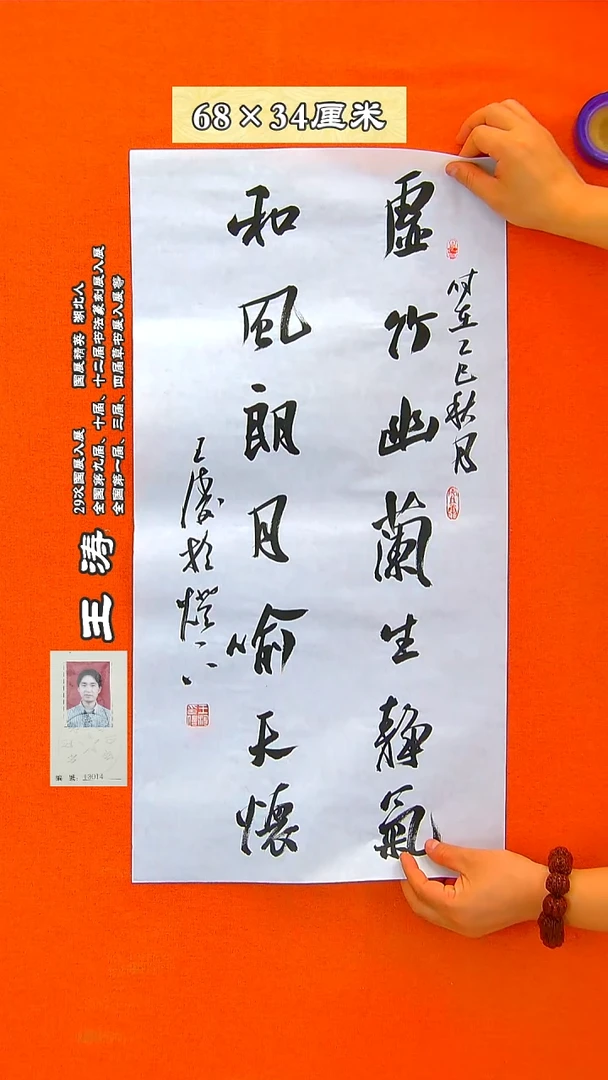 68×34厘米
虚竹幽蘭生静氣
和風朗月喻天懷
时在乙巳秋月
王涛於燈下
王涛
29次国展入展 国展精英 湖北人
全国第九届、十届、十二届书法篆刻展入展
全国第一届、三届、四届草书展入展等